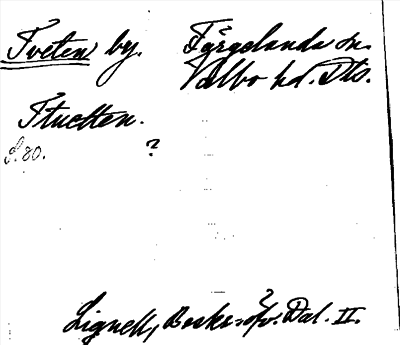 Tveten by. Färgelanda sn.
Valbo hd. Dls.
Stuckten.
S. 80. ?
Lignell, Beskr. öfv. Dal. II.